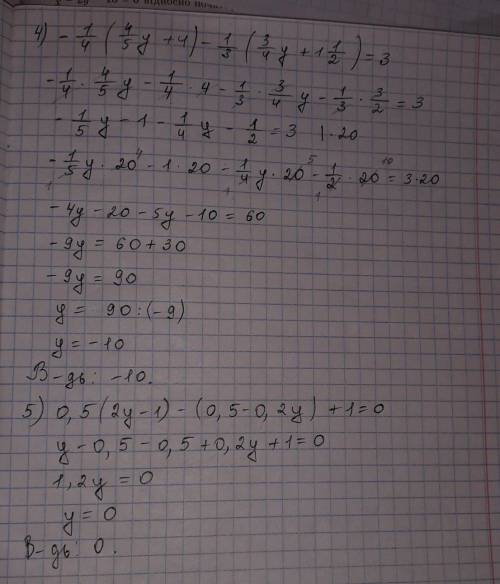 4) - 1/4 (4/5 y + 4) - 1/3 (3/4 y + 1 1/2) = 3
- 1/4 · 4/5 y - 1/4 · 4 - 1/3 · 3/4 y - 1/3 · 3/2 = 3
- 1/5 y - 1 - 1/4 y - 1/2 = 3 | · 20
- 1/5 y · 20 4 - 1 · 20 - 1/4 y · 20 5 - 1/2 · 20 10 = 3 · 20
- 4y - 20 - 5y - 10 = 60
- 9y = 60 + 30
- 9y = 90
y = 90 : (-9)
y = -10
В-дь: -10.
5) 0,5(2y-1) - (0,5-0,2y) + 1 = 0
y - 0,5 - 0,5 + 0,2y + 1 = 0
1,2y = 0
y = 0
В-дь: 0.